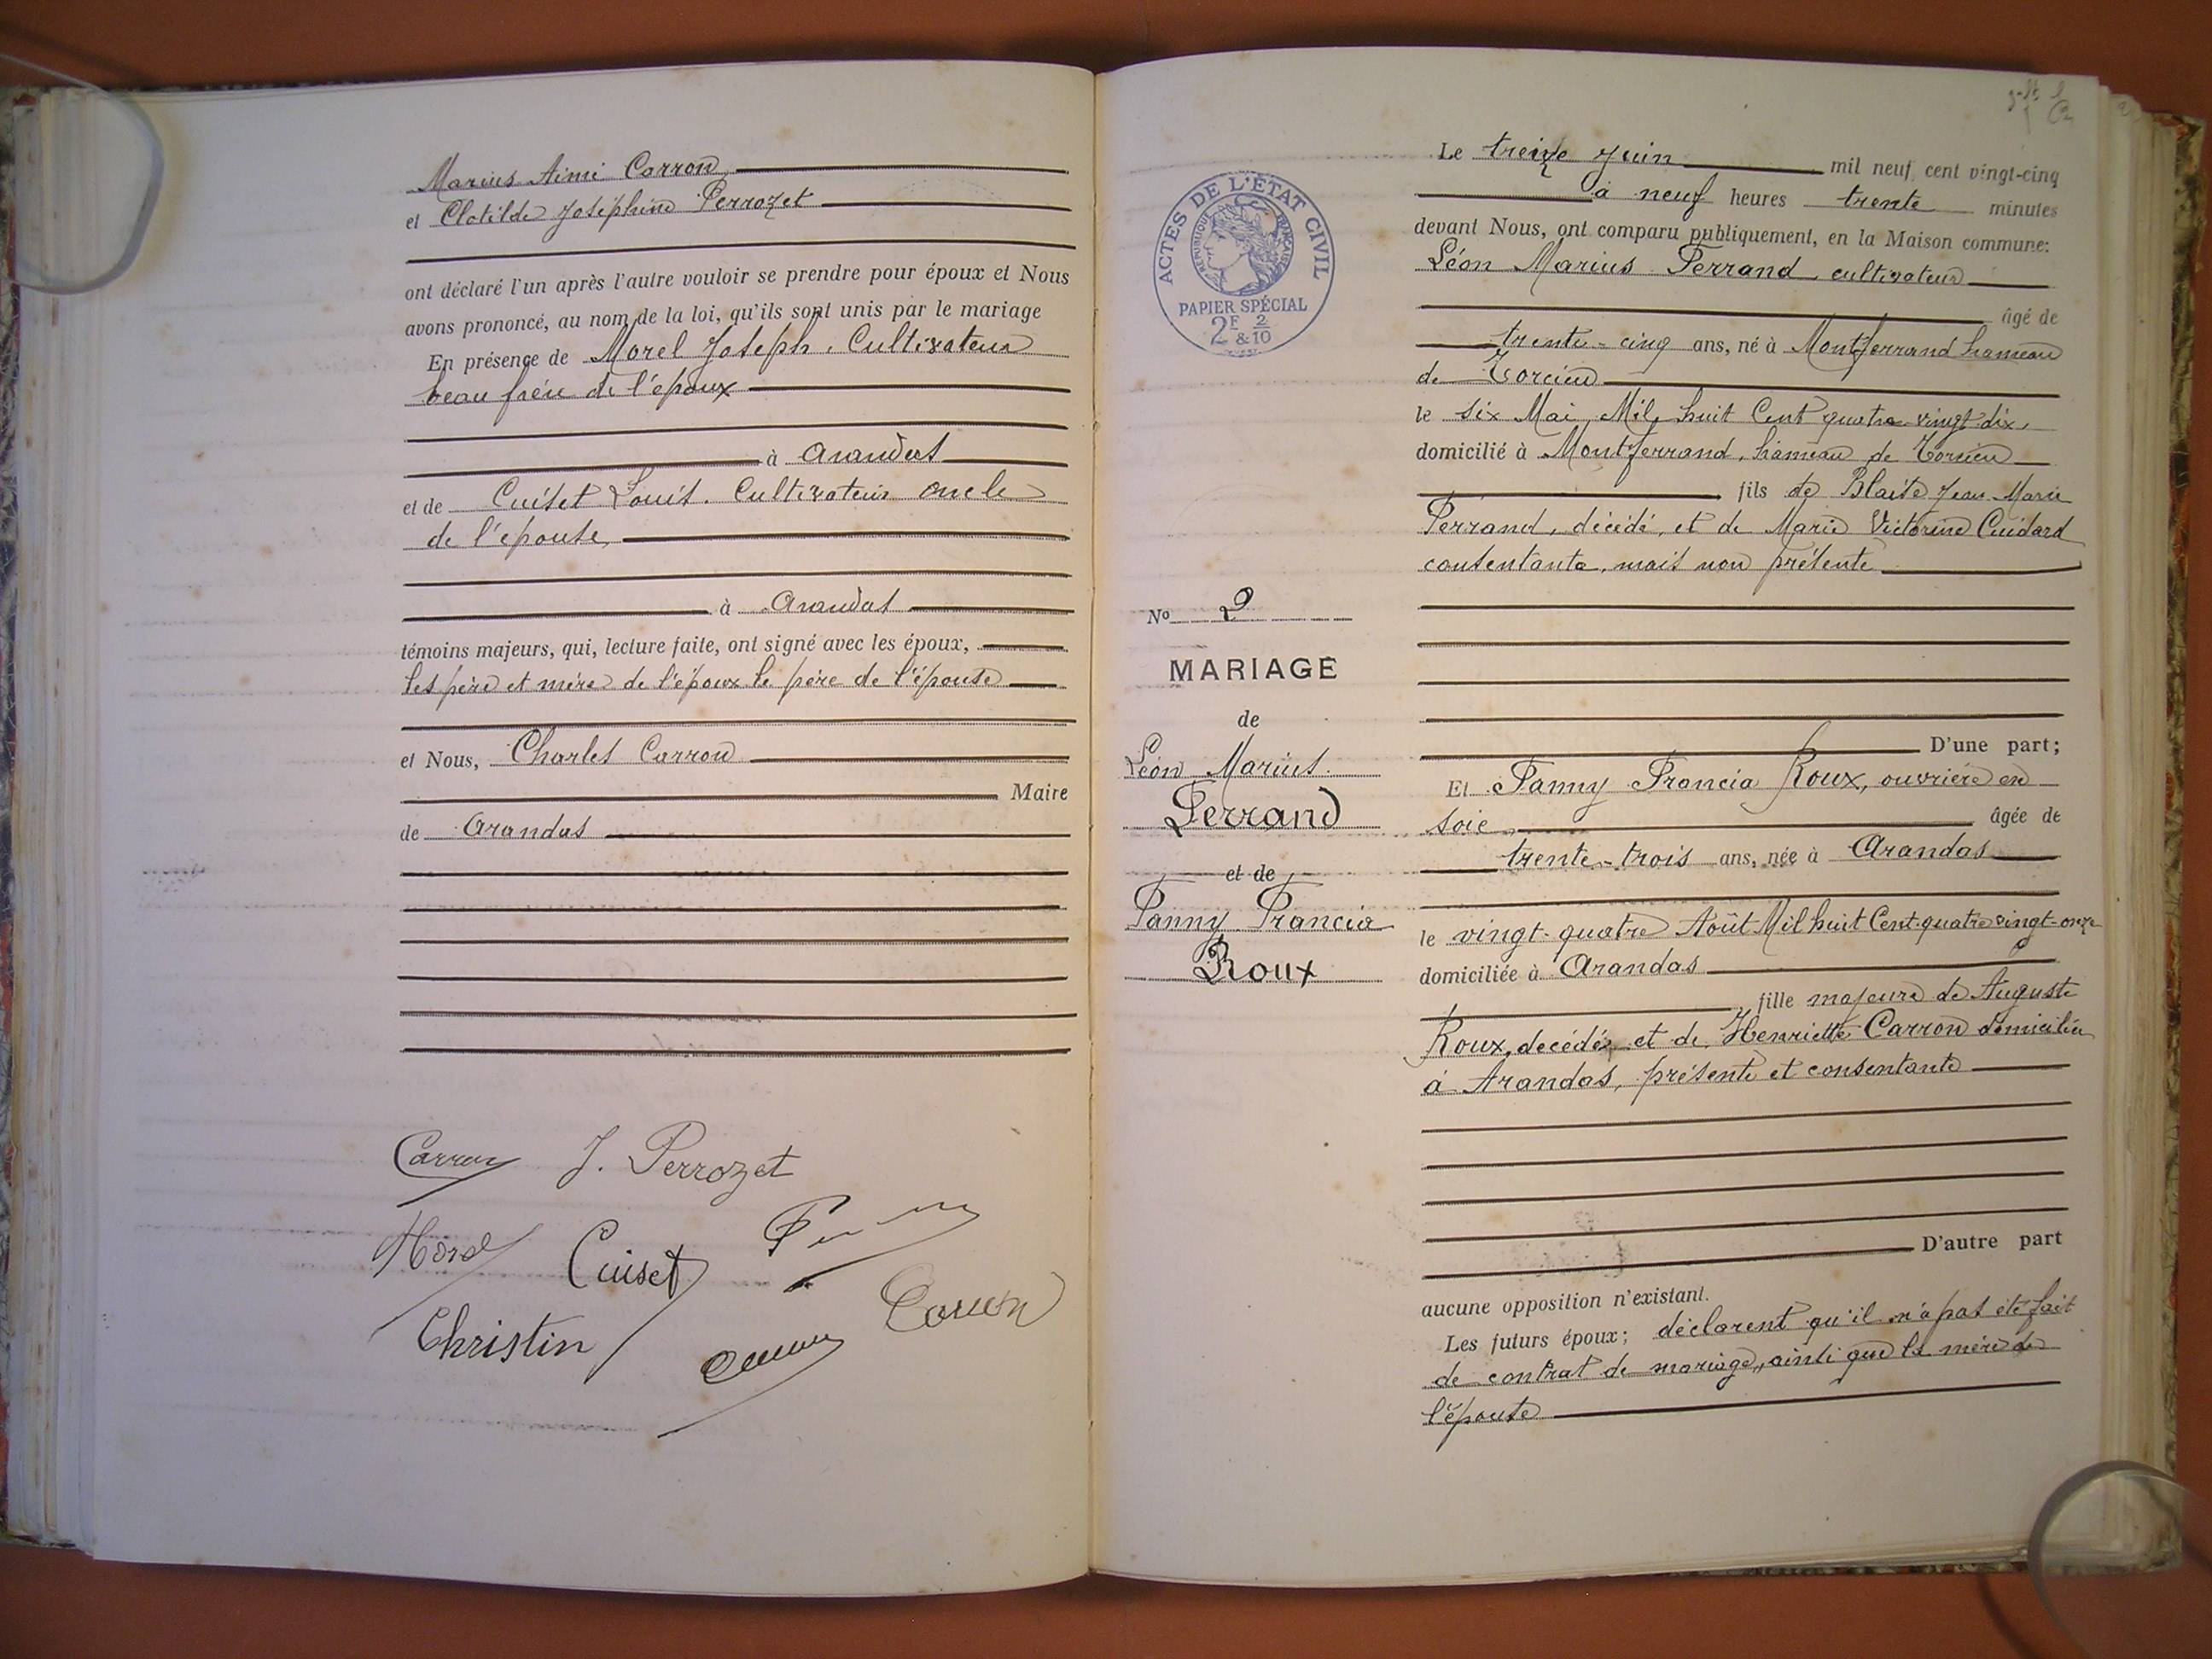 Marius Aimé Carron
et Clotilde Joséphine Perrozet
ont déclaré l'un après l'autre vouloir se prendre pour époux et Nous
avons prononcé, au nom de la loi, qu'ils sont unis par le mariage
En présence de Morel Joseph, Cultivateur
beau frère de l'époux
à Arandas
et de Cuiset Louis. Cultivateur oncle
de l'épouse,
à Arandas
témoins majeurs, qui, lecture faite, ont signé avec les époux,
les père et mère de l'époux le père de l'épouse
et Nous, Charles Carron
Maire
de Arandas
Carron J. Perrozet
Morel Cuiset
Christin Carron
ACTES DE L'ÉTAT CIVIL
RÉPUBLIQUE FRANÇAISE
PAPIER SPÉCIAL
2F & 2/10
No 2
MARIAGE
de
Léon Marius
Ferrand
et de
Fanny Francia
Roux
Le treize Juin mil neuf cent vingt-cinq
à neuf heures trente minutes
devant Nous, ont comparu publiquement, en la Maison commune:
Léon Marius Ferrand, cultivateur
âgé de
trente-cinq ans, né à Montferrand hameau
de Torcieu
le six Mai Mil huit Cent quatre vingt dix,
domicilié à Montferrand, hameau de Torcieu
fils de Blaise Jean Marie
Ferrand, décédé, et de Marie Victorine Cuidard
consentante, mais non présente
D'une part;
Et Fanny Francia Roux, ouvrière en
soie âgée de
trente-trois ans, née à Arandas
le vingt-quatre Août Mil huit Cent quatre vingt-onze
domiciliée à Arandas
, fille majeure de Auguste
Roux, decédé, et de Henriette Carron domiciliée
à Arandas, présente et consentante
D'autre part
aucune opposition n'existant.
Les futurs époux; déclarent qu'il n'a pas été fait
de contrat de mariage, ainsi que la mère de
l'épouse